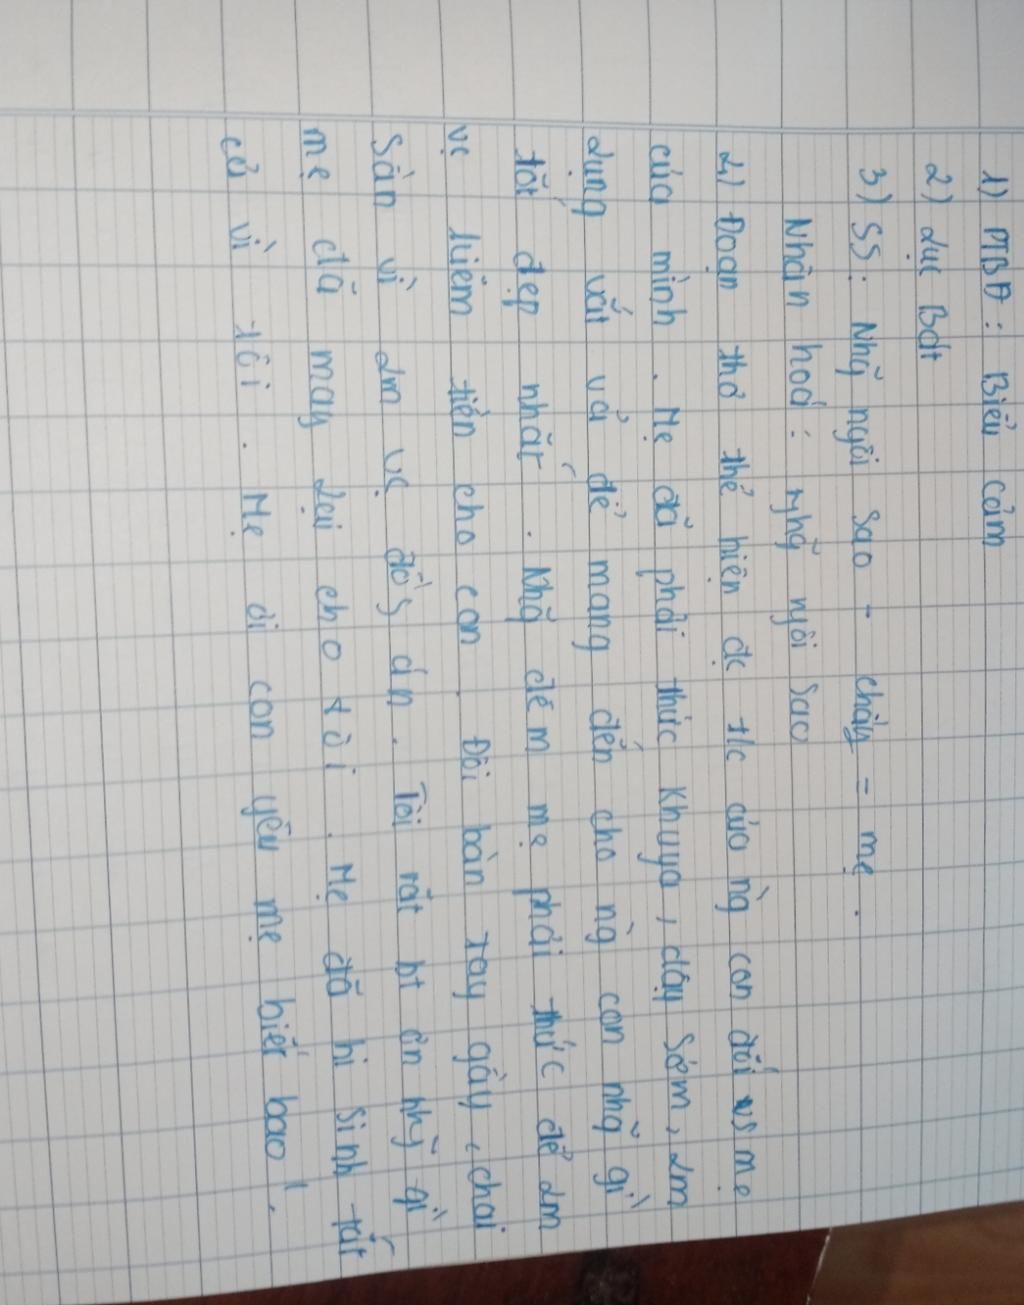 1) PTBĐ: Biểu cảm
2) lục Bát
3) SS: Nhg~ ngôi sao - chẳng = mẹ.
Nhân hoá: nhg~ ngôi sao
4) Đoạn thơ thể hiện đc t/c của ng` con đối vs mẹ
của mình. Mẹ đã phải thức khuya, dậy sớm, lm
lụng vất vả để mang đến cho ng` con nhg~ gì
tốt đẹp nhất. Nhg~ đêm mẹ phải thức để lm
vc kiếm tiền cho con. Đôi bàn tay gầy, chai
sần vì lm vc đồg án. Tôi rất bt ơn nhg~ gì
mẹ đã may lại cho tôi. Mẹ đã hi sinh tất
cả vì tôi. Mẹ ơi con yêu mẹ biết bao!